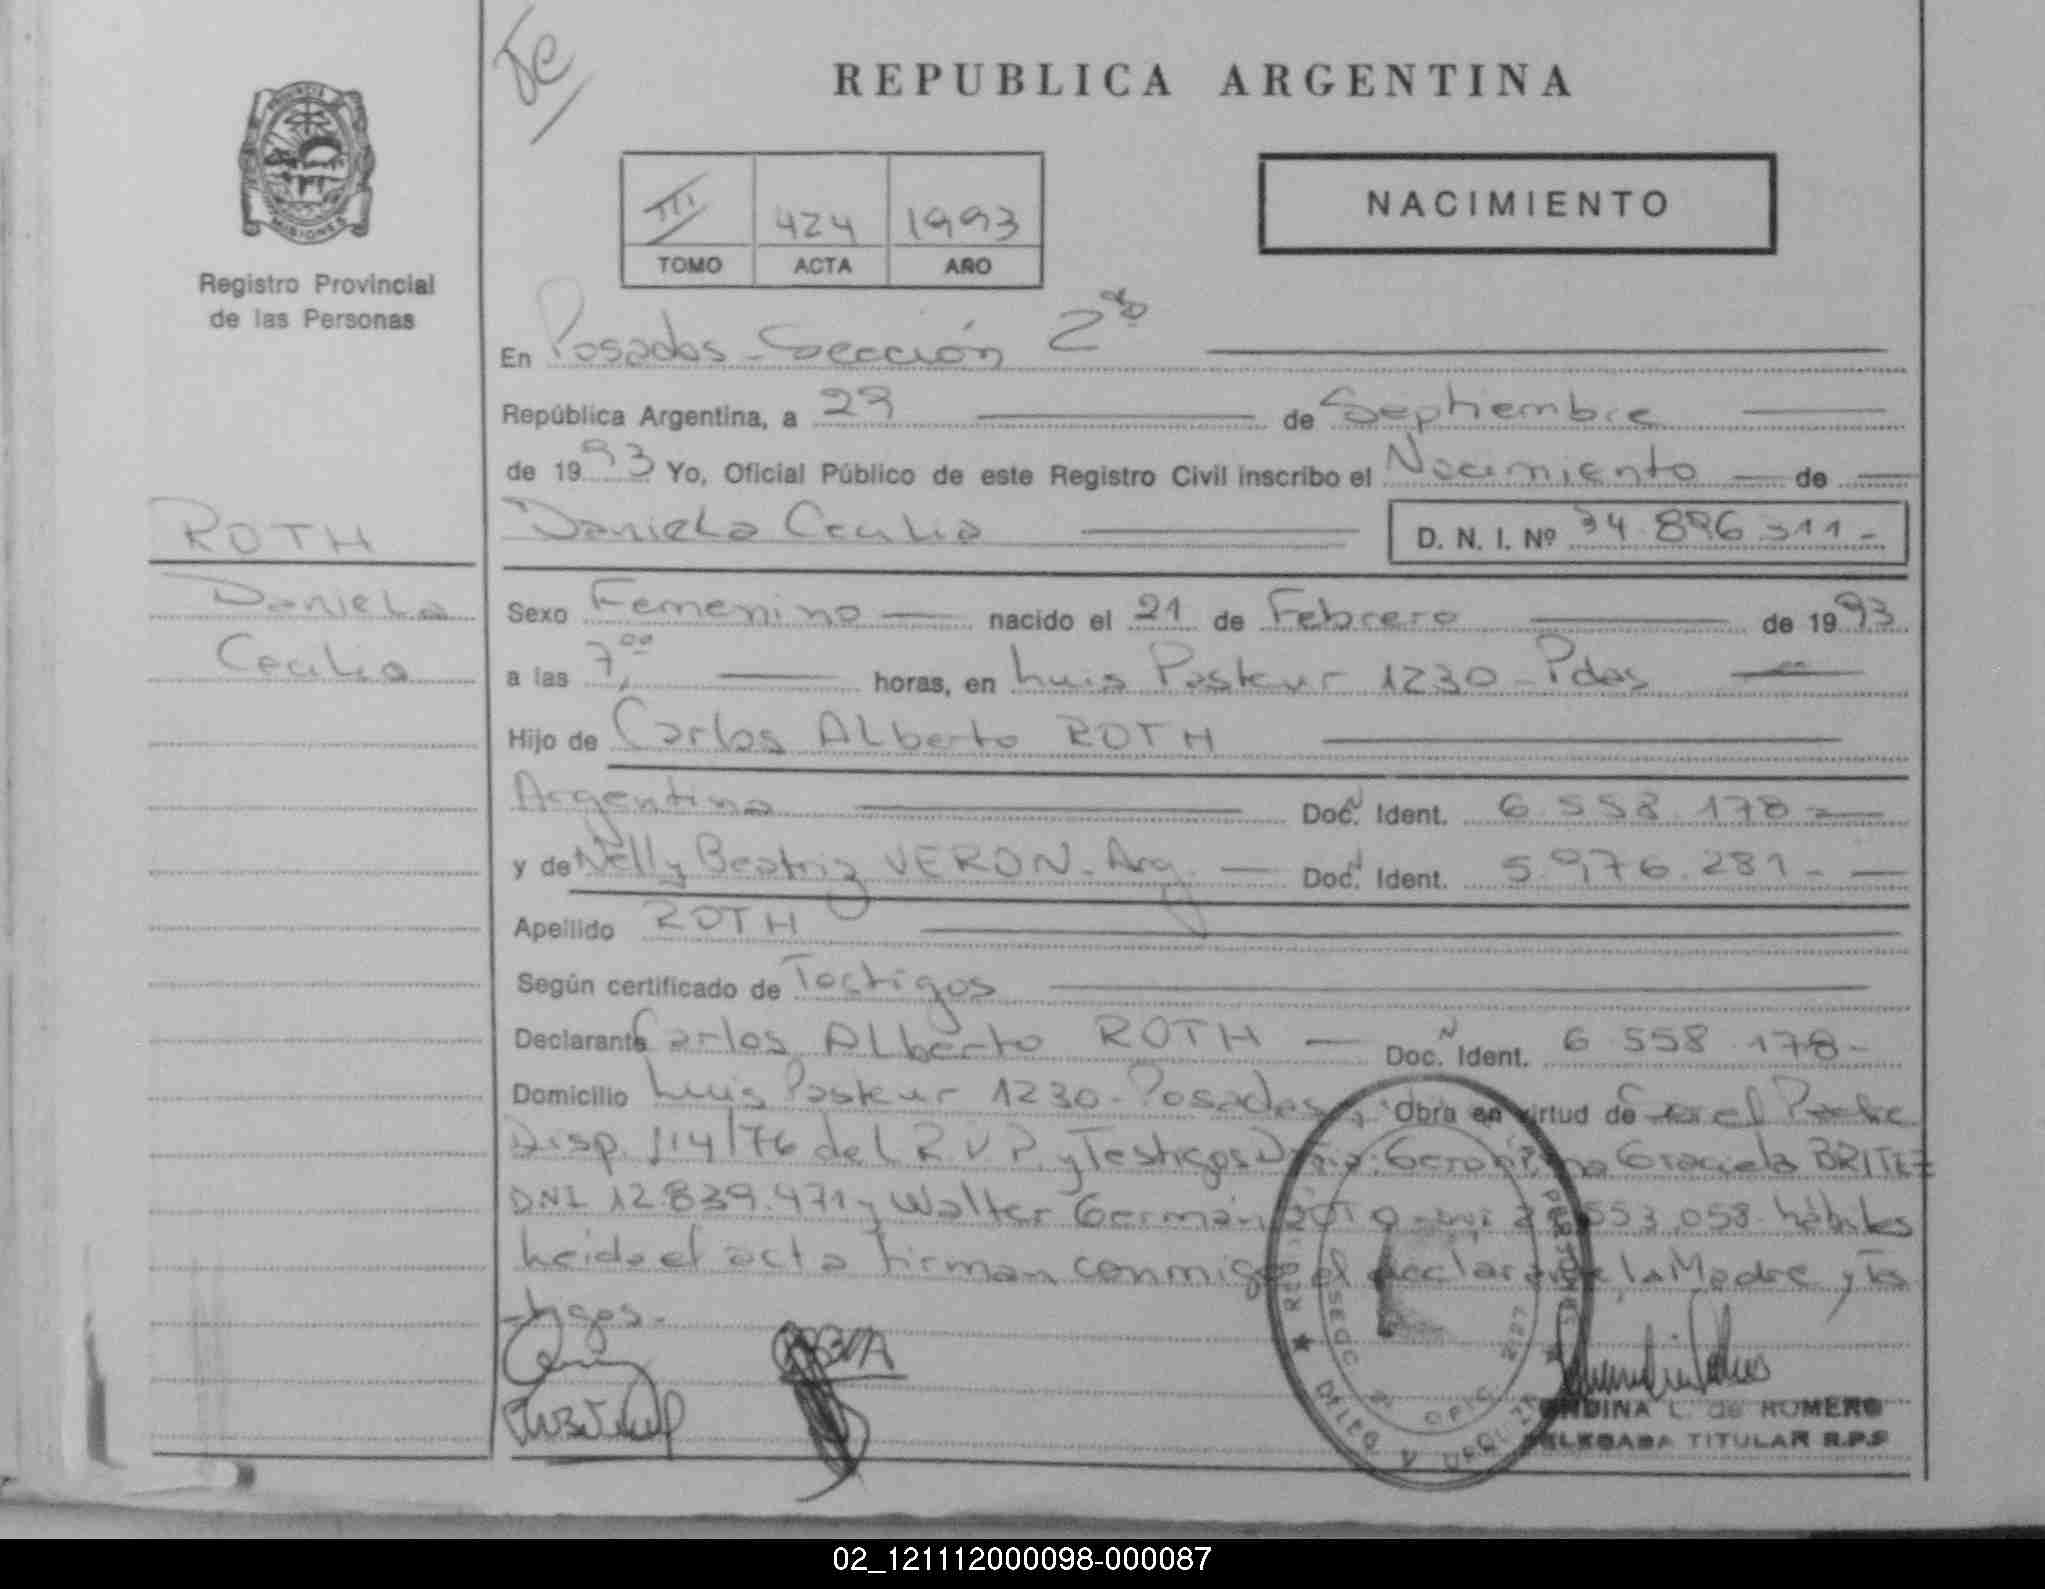 Jc
REPUBLICA ARGENTINA
PROVINCIA DE
MISIONES
Registro Provincial
de las Personas
NACIMIENTO
III 424 1993
TOMO ACTA AÑO
En Posadas - Sección 2da
República Argentina, a 23 de Septiembre
de 1993 Yo, Oficial Público de este Registro Civil inscribo el Nacimiento de
ROTH
Daniela
Cecilia
Daniela Cecilia D. N. I. Nº 34.896.311-
Sexo Femenino nacido el 21 de Febrero de 1993
a las 7,00 horas, en Luis Pasteur 1230 - Pdas
Hijo de Carlos Alberto ROTH
Argentino Doc. Ident. 6.558.178-
y de Nelly Beatriz VERON. Arg. Doc. Ident. 5.976.281-
Apellido ROTH
Según certificado de Testigos
Declarante Carlos Alberto ROTH Doc. Ident. 6.558.178-
Domicilio Luis Pasteur 1230 - Posadas, Obra en virtud de Ser el Padre
Disp. 114/76 del R.P.P. y Testigos Graciela BRITEZ
DNI 12.839.471 y Walter Germán 553.058 hábiles
Leida el acta firman conmigo el declarante, la Madre y tes
tigos.-
ONDINA L. de ROMERO
DELEGADA TITULAR R.P.P
02_121112000098-000087